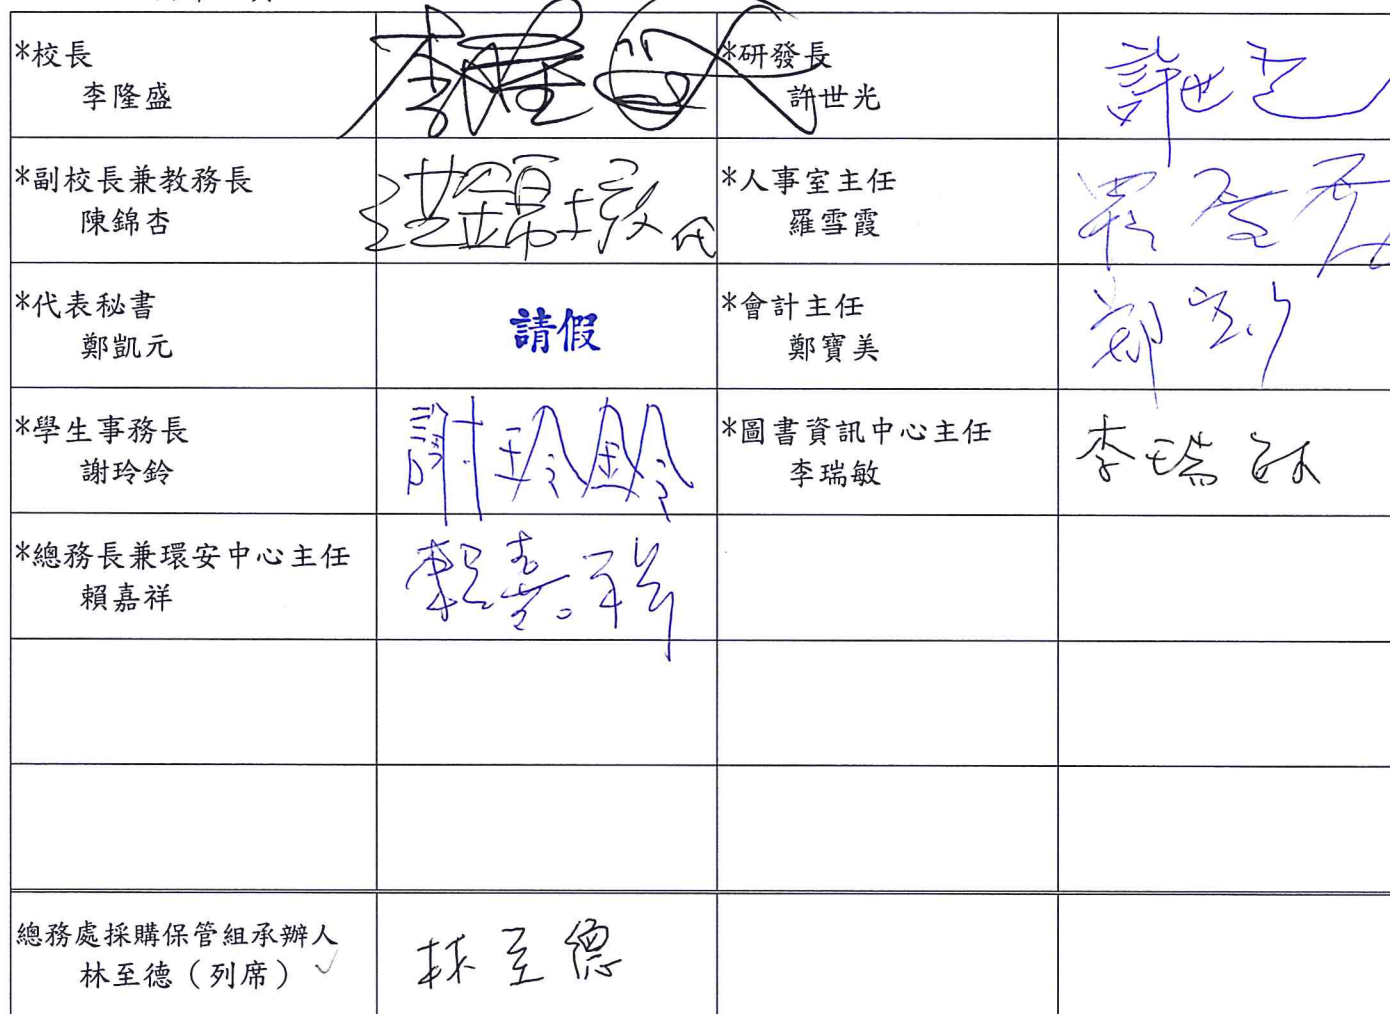 *校長
李隆盛
李隆盛
*研發長
許世光
許世光
*副校長兼教務長
陳錦杏
代
*人事室主任
羅雪霞
羅雪霞
*代表秘書
鄭凱元
請假
*會計主任
鄭寶美
鄭
*學生事務長
謝玲鈴
謝玲鈴
*圖書資訊中心主任
李瑞敏
李瑞敏
*總務長兼環安中心主任
賴嘉祥
賴嘉祥
總務處採購保管組承辦人
林至德（列席）
林至德